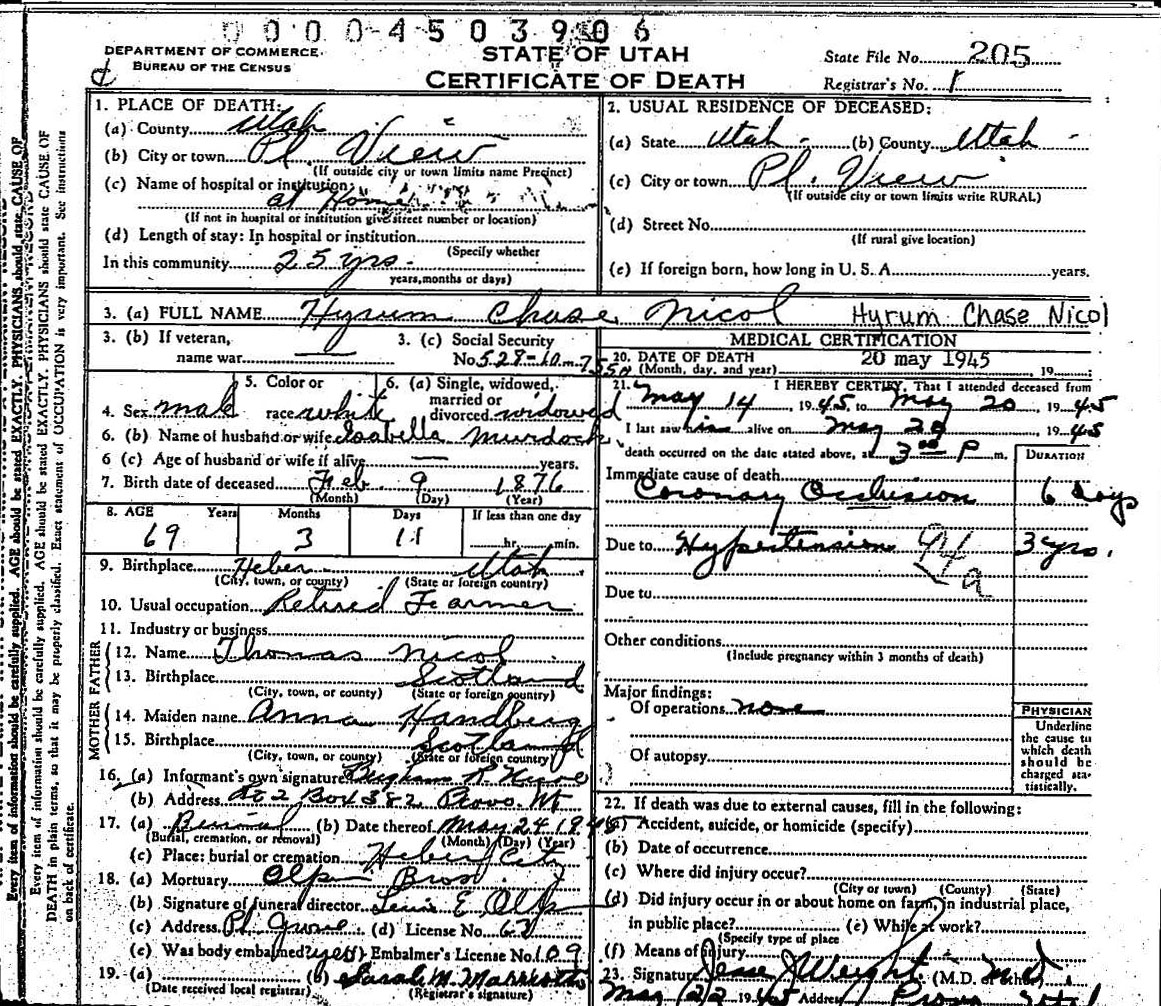 0004503906
DEPARTMENT OF COMMERCE
BUREAU OF THE CENSUS
STATE OF UTAH
CERTIFICATE OF DEATH
State File No. 205
Registrar's No. 1
1. PLACE OF DEATH:
(a) County Utah
(b) City or town Pl. View
(If outside city or town limits name Precinct)
(c) Name of hospital or institution:
at Home
(If not in hospital or institution give street number or location)
(d) Length of stay: In hospital or institution
(Specify whether
In this community 25 yrs.
years, months or days)
2. USUAL RESIDENCE OF DECEASED:
(a) State Utah (b) County Utah
(c) City or town Pl. View
(If outside city or town limits write RURAL)
(d) Street No.
(If rural give location)
(e) If foreign born, how long in U. S. A. years.
3. (a) FULL NAME Hyrum Chase Nicol Hyrum Chase Nicol
3. (b) If veteran,
name war
3. (c) Social Security
No. 528-10-
4. Sex male
5. Color or
race white
6. (a) Single, widowed,
married or
divorced widowed
6. (b) Name of husband or wife Isabella Murdock
6 (c) Age of husband or wife if alive years.
7. Birth date of deceased Feb. 9 1876
(Month) (Day) (Year)
8. AGE Years Months Days If less than one day
69 3 11 hr. min.
9. Birthplace Heber Utah
(City, town, or county) (State or foreign country)
10. Usual occupation Retired Farmer
11. Industry or business
FATHER
12. Name Thomas Nicol
13. Birthplace Scotland
(City, town, or county) (State or foreign country)
MOTHER
14. Maiden name Anna Handberg
15. Birthplace Scotland
(City, town, or county) (State or foreign country)
16. (a) Informant's own signature Nicol
(b) Address Rt 2 Box 382 Provo Ut
17. (a) Burial (b) Date thereof May 24 1945
(Burial, cremation, or removal) (Month) (Day) (Year)
(c) Place: burial or cremation Heber City
18. (a) Mortuary Olpin Bros.
(b) Signature of funeral director E Olpin
(c) Address Pl. Grove (d) License No. 62
(e) Was body embalmed? yes Embalmer's License No. 109
19. (a) (b) Sarah M.
(Date received local registrar) (Registrar's signature)
MEDICAL CERTIFICATION
20. DATE OF DEATH 20 may 1945
(Month, day, and year) , 19
21. I HEREBY CERTIFY, That I attended deceased from
May 14, 1945, to May 20, 1945
I last saw him alive on May 20, 1945
death occurred on the date stated above, at 3 00 P m.
DURATION
Immediate cause of death
Coronary Occlusion 6 days
Due to Hypertension 94a 3 yrs.
Due to
Other conditions
(Include pregnancy within 3 months of death)
Major findings:
Of operations none
Of autopsy
PHYSICIAN
Underline
the cause to
which death
should be
charged sta-
tistically.
22. If death was due to external causes, fill in the following:
(a) Accident, suicide, or homicide (specify)
(b) Date of occurrence
(c) Where did injury occur?
(City or town) (County) (State)
(d) Did injury occur in or about home on farm, in industrial place,
in public place? (e) While at work?
(Specify type of place
(f) Means of injury
23. Signature Jesse J Weight (M.D. or other) M.D.
May 22 1945 Address Provo Utah
Every item of information should be carefully supplied. AGE should be stated EXACTLY. PHYSICIANS should state CAUSE OF
Every item of information should be carefully supplied. AGE should be stated EXACTLY. PHYSICIANS should state CAUSE OF
DEATH in plain terms, so that it may be properly classified. Exact statement of OCCUPATION is very important. See instructions
on back of certificate.